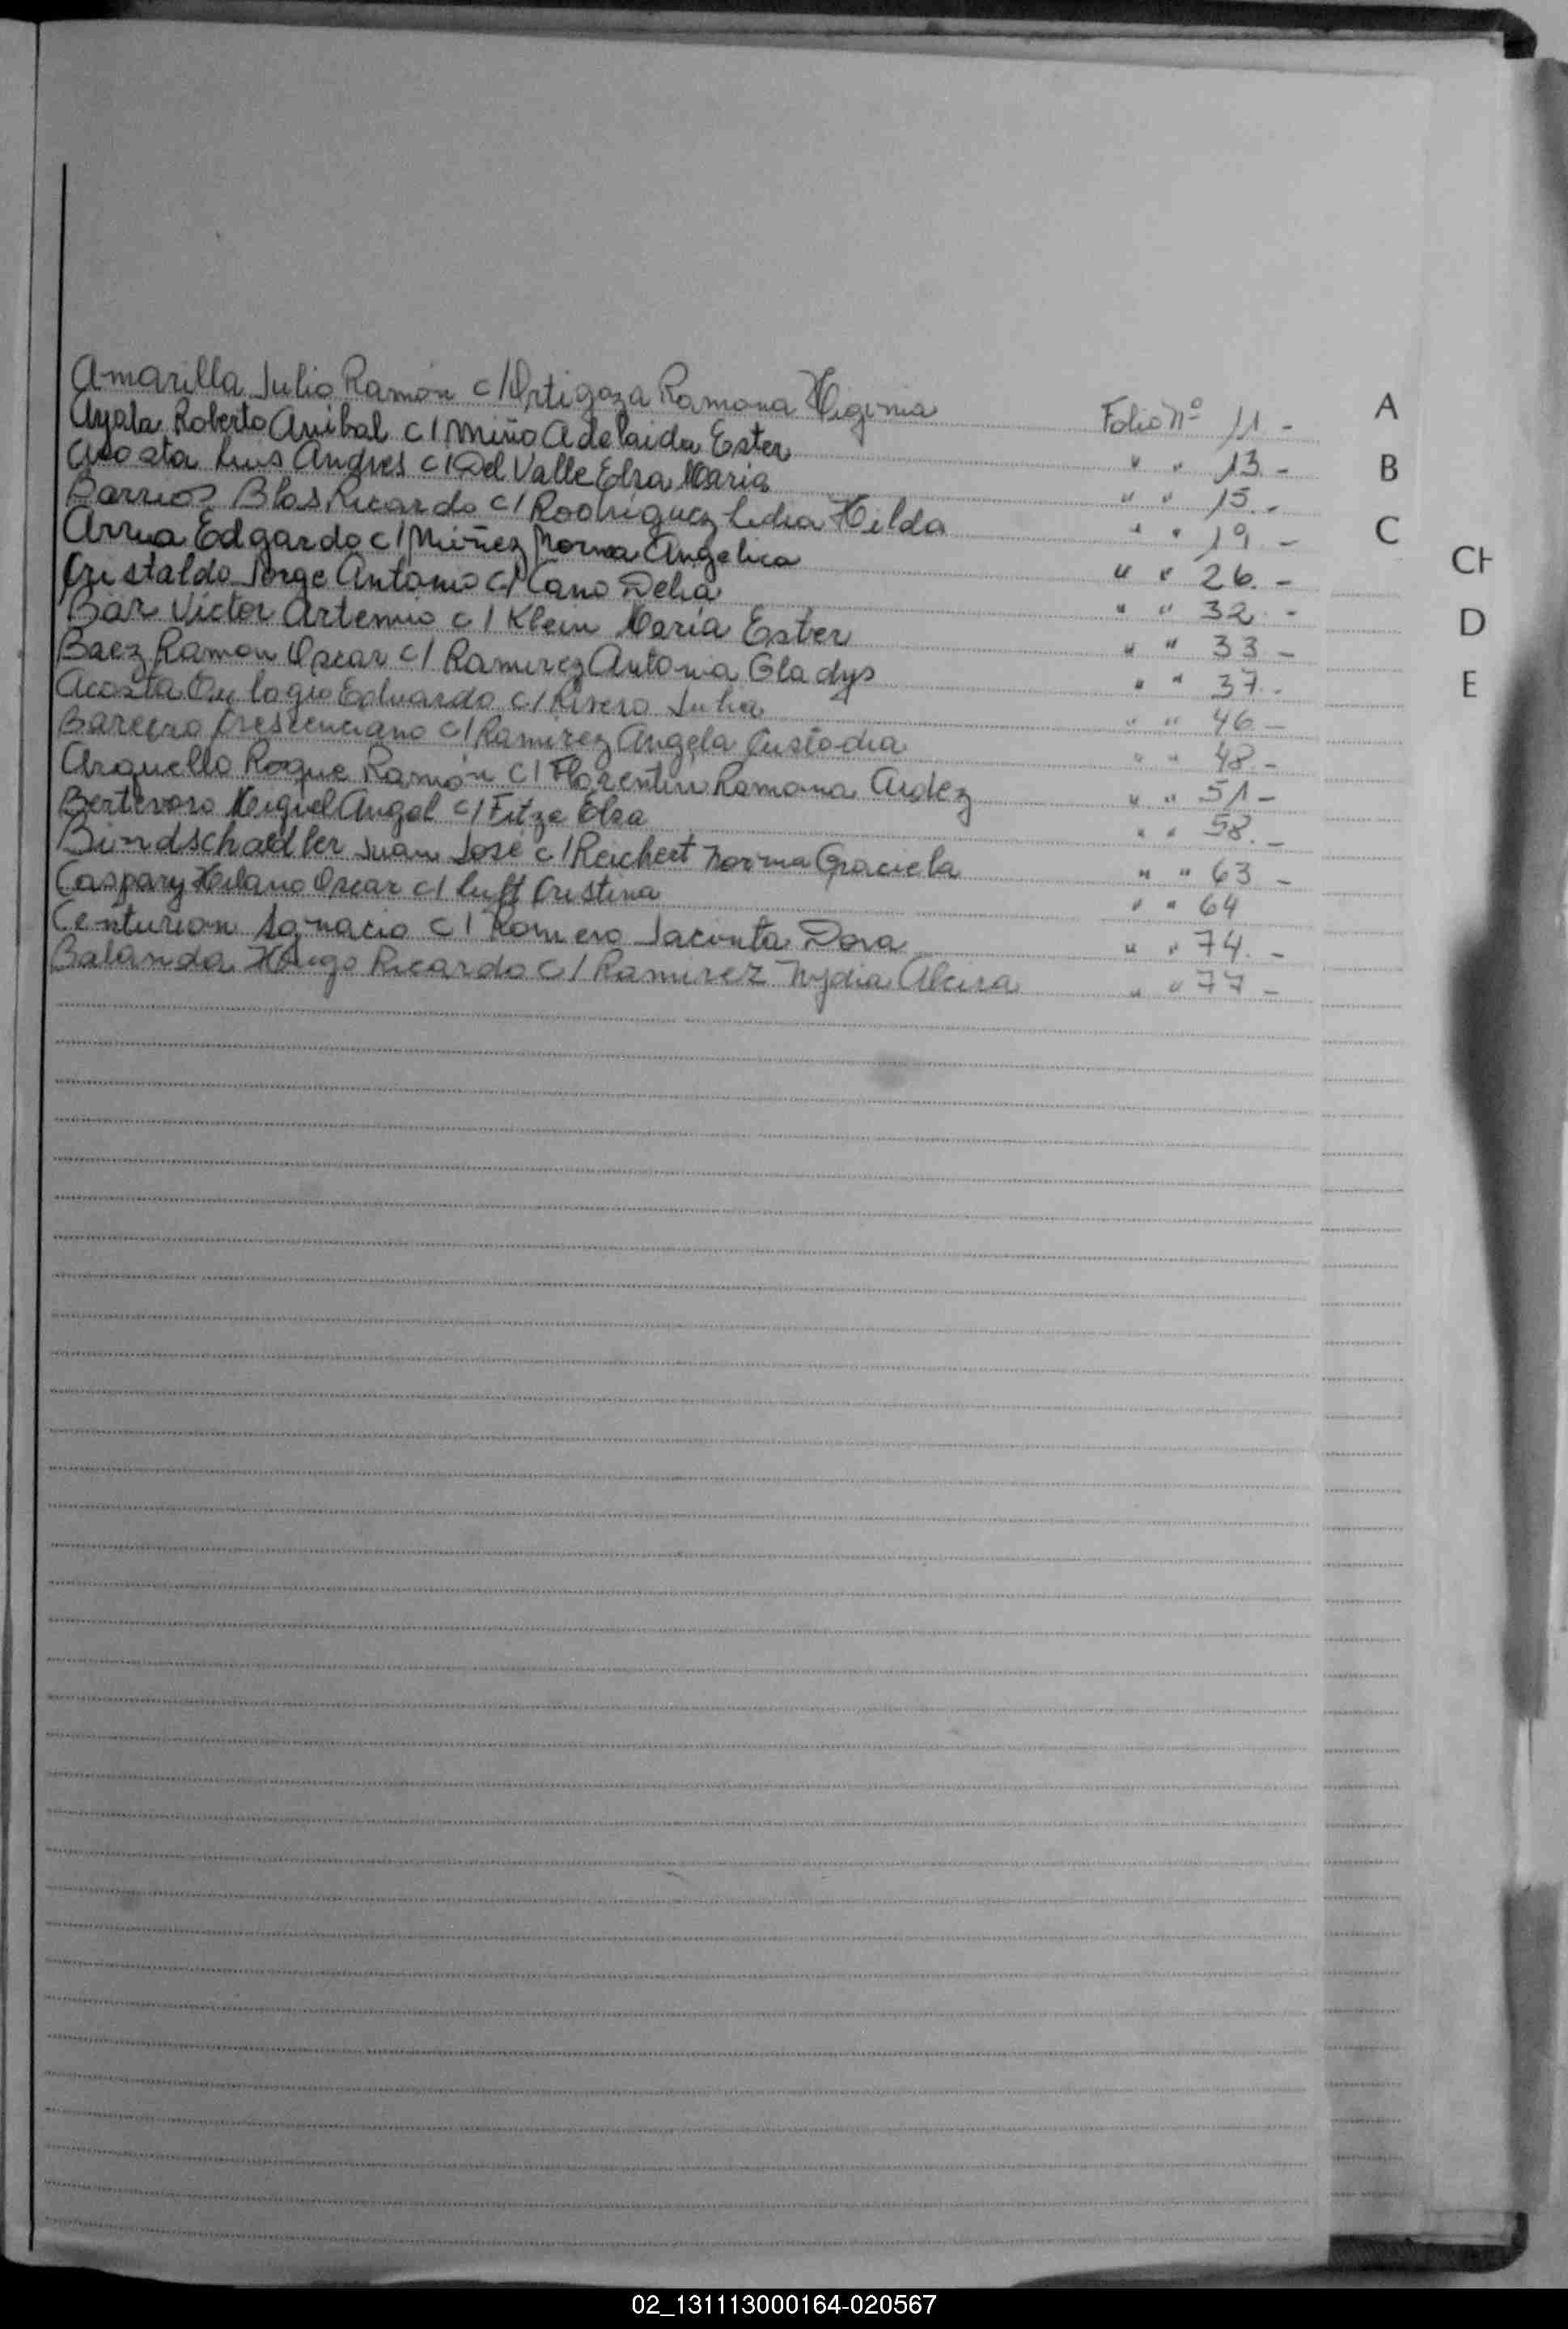 Amarilla Julio Ramón c/ Ortigoza Ramona Higinia Folio nº 11 -
Ayala Roberto Anibal c/ Miño Adelaida Ester " " 13. -
Acosta Luis Andres c/ Del Valle Elsa Maria " " 15. -
Barrios Blas Ricardo c/ Rodriguez Lidia Hilda " " 19. -
Arrua Edgardo c/ Miñez Norma Angelica " " 26. -
Cristaldo Jorge Antonio c/ Cano Delia " " 32. -
Bär Victor Artemio c/ Klein María Ester " " 33 -
Baez Ramon Oscar c/ Ramirez Antonia Gladys " " 37. -
Acosta Eulogio Eduardo c/ Rivero Julia " " 46 -
Bareiro Crescenciano c/ Ramirez Angela Custodia " " 48. -
Arguello Roque Ramón c/ Florentin Ramona " " 51 -
Miguel Angel c/ Elsa " " 58. -
Bindschaedler Juan José c/ Reichert Norma Graciela " " 63 -
Caspary Oscar c/ Luft Cristina " " 64
Centurion Ignacio c/ Romero Jacinta Dora " " 74. -
Balanda Hugo Ricardo c/ Ramirez Nydia Alcira " " 77 -
A
B
C
CH
D
E
02_131113000164-020567